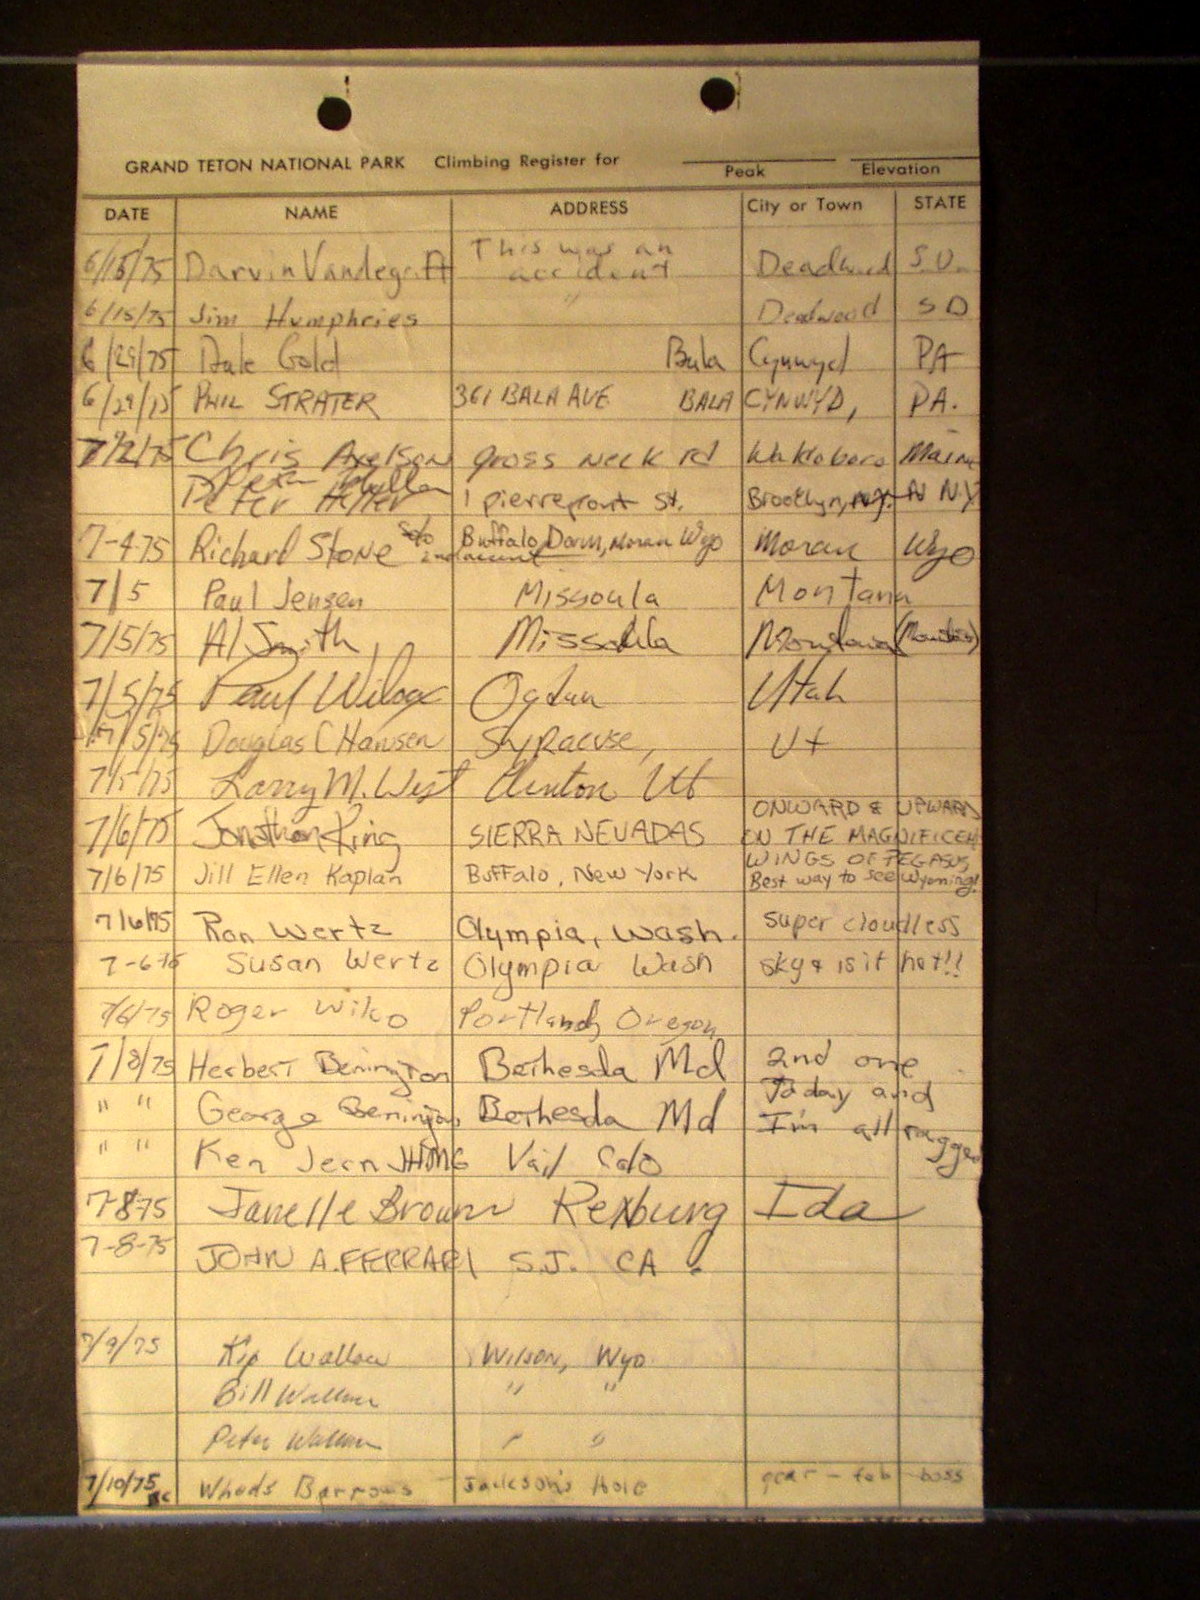 GRAND TETON NATIONAL PARK Climbing Register for
Peak Elevation
DATE NAME ADDRESS City or Town STATE
6/15/75 Darvin Vandegraft This was an accident Deadwood S.D.
6/15/75 Jim Humphries " Deadwood SD
6/29/75 Dale Gold Bala Cynwyd PA
6/29/75 PHIL STRATER 361 BALA AVE BALA CYNWYD, PA.
7/2/75 Chris Axelson gross neck rd Waldoboro Maine
Peter Heller 1 pierrepont St. Brooklyn, N.Y. N.Y.
7-4-75 Richard Stone solo 2nd ascent Buffalo Dorm, Moran Wyo Moran Wyo
7/5 Paul Jensen Missoula Montana
7/5/75 Al Smith Missoula Montana
7/5/75 Paul Wilcox Ogden Utah
7/5/75 Douglas C Hansen Syracuse, Ut
7/5/75 Larry M. West Clinton Ut
ONWARD & UPWARD
7/6/75 Jonathan King SIERRA NEVADAS ON THE MAGNIFICENT
WINGS OF PEGASUS,
7/6/75 Jill Ellen Kaplan Buffalo, New York Best way to see Wyoming!
7/6/75 Ron Wertz Olympia, Wash. super cloudless
7-6-75 Susan Wertz Olympia Wash sky & is it hot!!
7/6/75 Roger Portland, Oregon
7/8/75 Herbert Benington Bethesda Md 2nd one
" " George Benington Bethesda Md Today and
I'm all ragged
" " Ken Vail Colo
7-8-75 Janelle Brown Rexburg Ida
7-8-75 JOHN A. FERRARI S.J. CA.
7/9/75 Kip Wallace Wilson, Wyo
Bill Wallace " "
Peter Wallace " "
7/10/75 Barrows Jackson's Hole